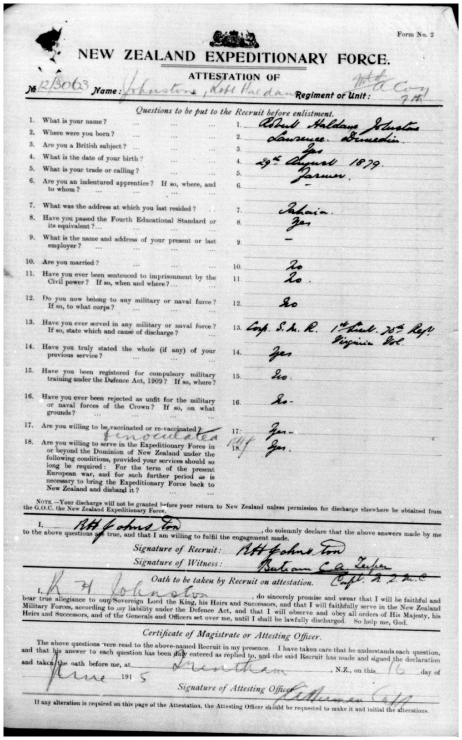 Form No. 2
NEW ZEALAND EXPEDITIONARY FORCE.
ATTESTATION OF
No. 12/3063 Name: Johnston, Robt Haldane Regiment or Unit: A Coy 7th
Questions to be put to the Recruit before enlistment.
1. What is your name? ... 1. Robert Haldane Johnston
2. Where were you born? ... 2. Lawrence. Dunedin.
3. Are you a British subject? ... 3. Yes
4. What is the date of your birth? ... 4. 29th August 1879.
5. What is your trade or calling? ... 5. Farmer.
6. Are you an indentured apprentice? If so, where, and
to whom? ... 6. –
7. What was the address at which you last resided? ... 7.
8. Have you passed the Fourth Educational Standard or
its equivalent? ... 8. Yes
9. What is the name and address of your present or last
employer? ... 9. –
10. Are you married? ... 10. No
11. Have you ever been sentenced to imprisonment by the
Civil power? If so, when and where? ... 11. No.
12. Do you now belong to any military or naval force?
If so, to what corps? ... 12. No
13. Have you ever served in any military or naval force?
If so, state which and cause of discharge? 13. Cap. S. M. R. 1st Lieut. 70th Regt.
Virginia Vol.
14. Have you truly stated the whole (if any) of your
previous service? ... 14. Yes
15. Have you been registered for compulsory military
training under the Defence Act, 1909? If so, where? 15. No.
16. Have you ever been rejected as unfit for the military
or naval forces of the Crown? If so, on what
grounds? ... 16. No-
17. Are you willing to be vaccinated or re-vaccinated? 17. Yes-
& innoculated
18. Are you willing to serve in the Expeditionary Force in 18. Yes.
or beyond the Dominion of New Zealand under the
following conditions, provided your services should so
long be required: For the term of the present
European war, and for such further period as is
necessary to bring the Expeditionary Force back to
New Zealand and disband it?
NOTE.—Your discharge will not be granted before your return to New Zealand unless permission for discharge elsewhere be obtained from
the G.O.C. the New Zealand Expeditionary Force.
I, R H Johnston, do solemnly declare that the above answers made by me
to the above questions are true, and that I am willing to fulfil the engagement made.
Signature of Recruit: R H Johnston
Signature of Witness:
Oath to be taken by Recruit on attestation. Capt.
I, R H Johnston, do sincerely promise and swear that I will be faithful and
bear true allegiance to our Sovereign Lord the King, his Heirs and Successors, and that I will faithfully serve in the New Zealand
Military Forces, according to my liability under the Defence Act, and that I will observe and obey all orders of His Majesty, his
Heirs and Successors, and of the Generals and Officers set over me, until I shall be lawfully discharged. So help me, God.
Certificate of Magistrate or Attesting Officer.
The above questions were read to the above-named Recruit in my presence. I have taken care he understands each question,
and that his answer to each question has been duly entered as replied to, and the said Recruit has made and signed the declaration
and taken the oath before me, at Trentham, N.Z., on this 16 day of
June 1915
Signature of Attesting Officer Capt
If any alteration is required on this page of the Attestation, the Attesting Officer should be requested to make it and initial the alterations.